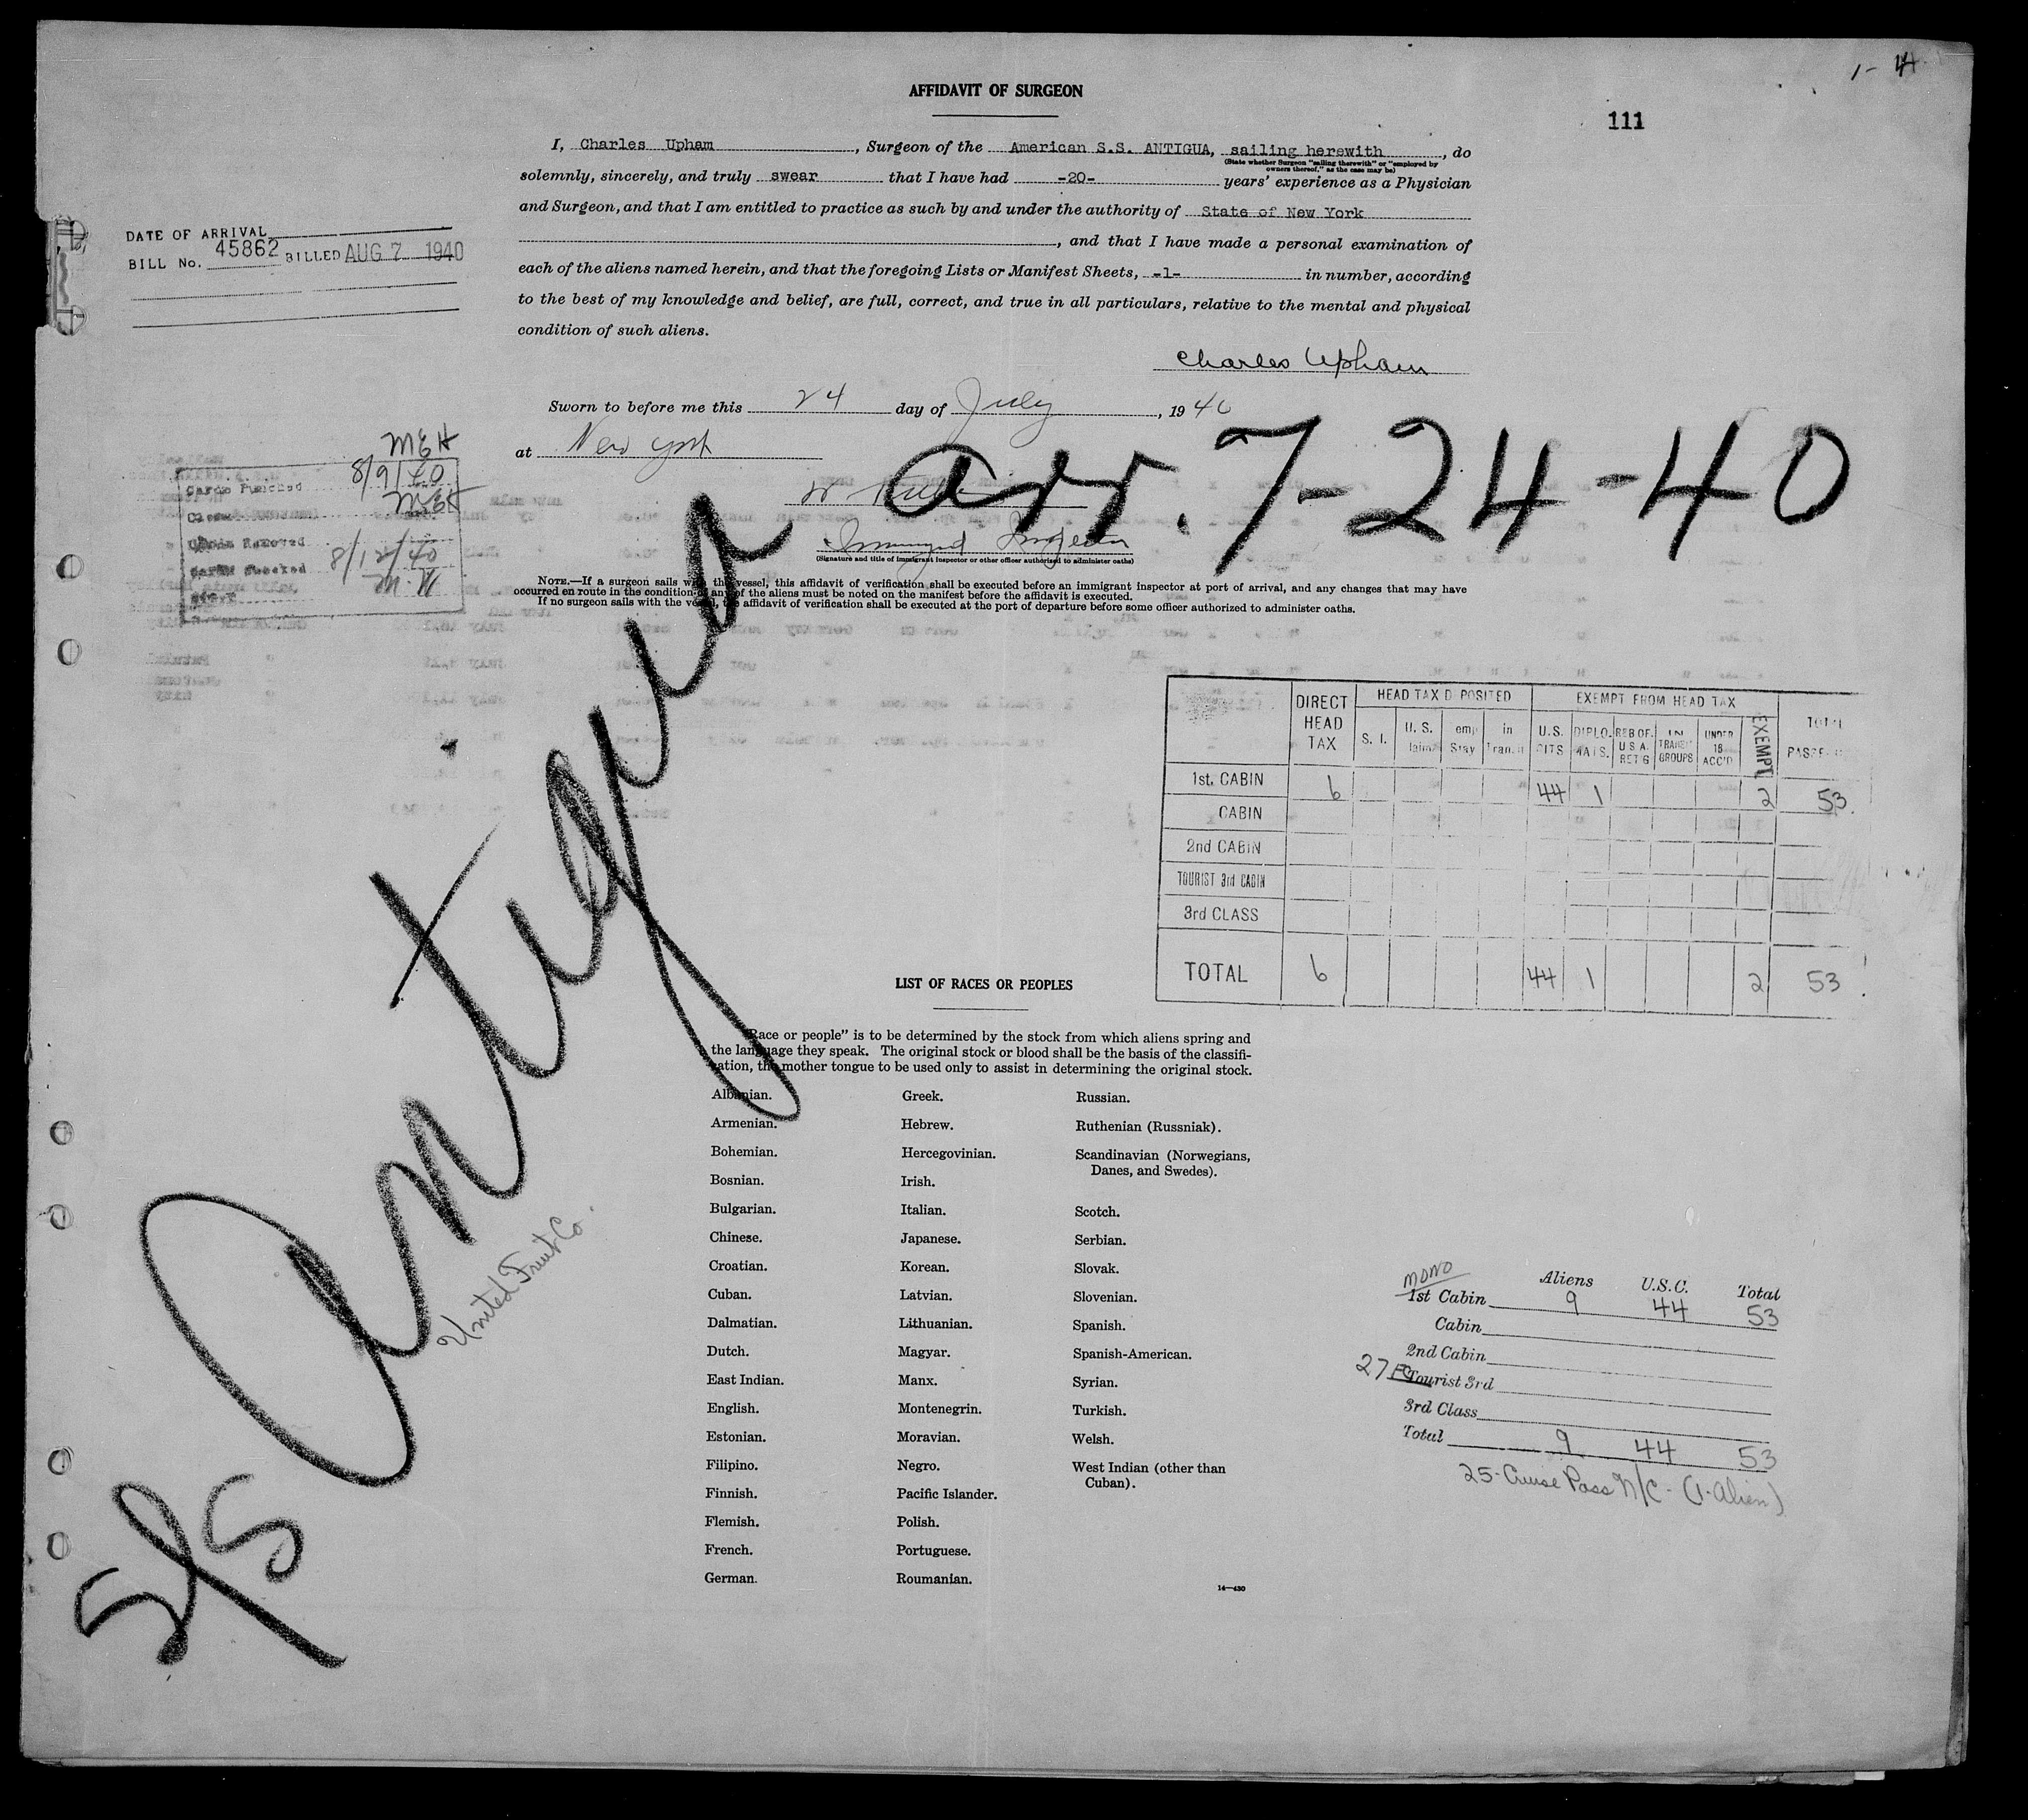 1-4
AFFIDAVIT OF SURGEON
111
I, Charles Upham, Surgeon of the American S.S. ANTIGUA, sailing herewith, do
(State whether Surgeon "sailing therewith" or "employed by
owners thereof," as the case may be)
solemnly, sincerely, and truly swear that I have had -20- years' experience as a Physician
and Surgeon, and that I am entitled to practice as such by and under the authority of State of New York
, and that I have made a personal examination of
each of the aliens named herein, and that the foregoing Lists or Manifest Sheets, -1- in number, according
to the best of my knowledge and belief, are full, correct, and true in all particulars, relative to the mental and physical
condition of such aliens.
Charles Upham
Sworn to before me this 24 day of July, 1940
at New York
Immigrant Inspector
(Signature and title of immigrant inspector or other officer authorized to administer oaths)
NOTE.—If a surgeon sails with the vessel, this affidavit of verification shall be executed before an immigrant inspector at port of arrival, and any changes that may have
occurred en route in the condition of any of the aliens must be noted on the manifest before the affidavit is executed.
If no surgeon sails with the vessel, the affidavit of verification shall be executed at the port of departure before some officer authorized to administer oaths.
DATE OF ARRIVAL
BILL No. 45862 BILLED AUG 7 1940
MEH
Cards Punched 8/9/40
MEH
Cards Removed
8/12/40
Cards Checked
M.W
arr. 7-24-40
S/S Antigua
United Fruit Co.
DIRECT HEAD TAX HEAD TAX D POSITED EXEMPT FROM HEAD TAX TOTAL
S. I. U. S. emp Stay in Transit U.S. CITS DIPLO. MATS. RES OF. U S A. RET G IN TRANSIT GROUPS UNDER 16 ACC'D EXEMPT
1st. CABIN 6 44 1 2 53
CABIN
2nd CABIN
TOURIST 3rd CABIN
3rd CLASS
TOTAL 6 44 1 2 53
LIST OF RACES OR PEOPLES
"Race or people" is to be determined by the stock from which aliens spring and
the language they speak. The original stock or blood shall be the basis of the classifi-
cation, the mother tongue to be used only to assist in determining the original stock.
Albanian.
Armenian.
Bohemian.
Bosnian.
Bulgarian.
Chinese.
Croatian.
Cuban.
Dalmatian.
Dutch.
East Indian.
English.
Estonian.
Filipino.
Finnish.
Flemish.
French.
German.
Greek.
Hebrew.
Hercegovinian.
Irish.
Italian.
Japanese.
Korean.
Latvian.
Lithuanian.
Magyar.
Manx.
Montenegrin.
Moravian.
Negro.
Pacific Islander.
Polish.
Portuguese.
Roumanian.
Russian.
Ruthenian (Russniak).
Scandinavian (Norwegians,
Danes, and Swedes).
Scotch.
Serbian.
Slovak.
Slovenian.
Spanish.
Spanish-American.
Syrian.
Turkish.
Welsh.
West Indian (other than
Cuban).
14—430
MONO Aliens U.S.C. Total
1st Cabin 9 44 53
Cabin
2nd Cabin
Tourist 3rd
3rd Class
Total 9 44 53
25-Cruise Pass N/C - (1-Alien)